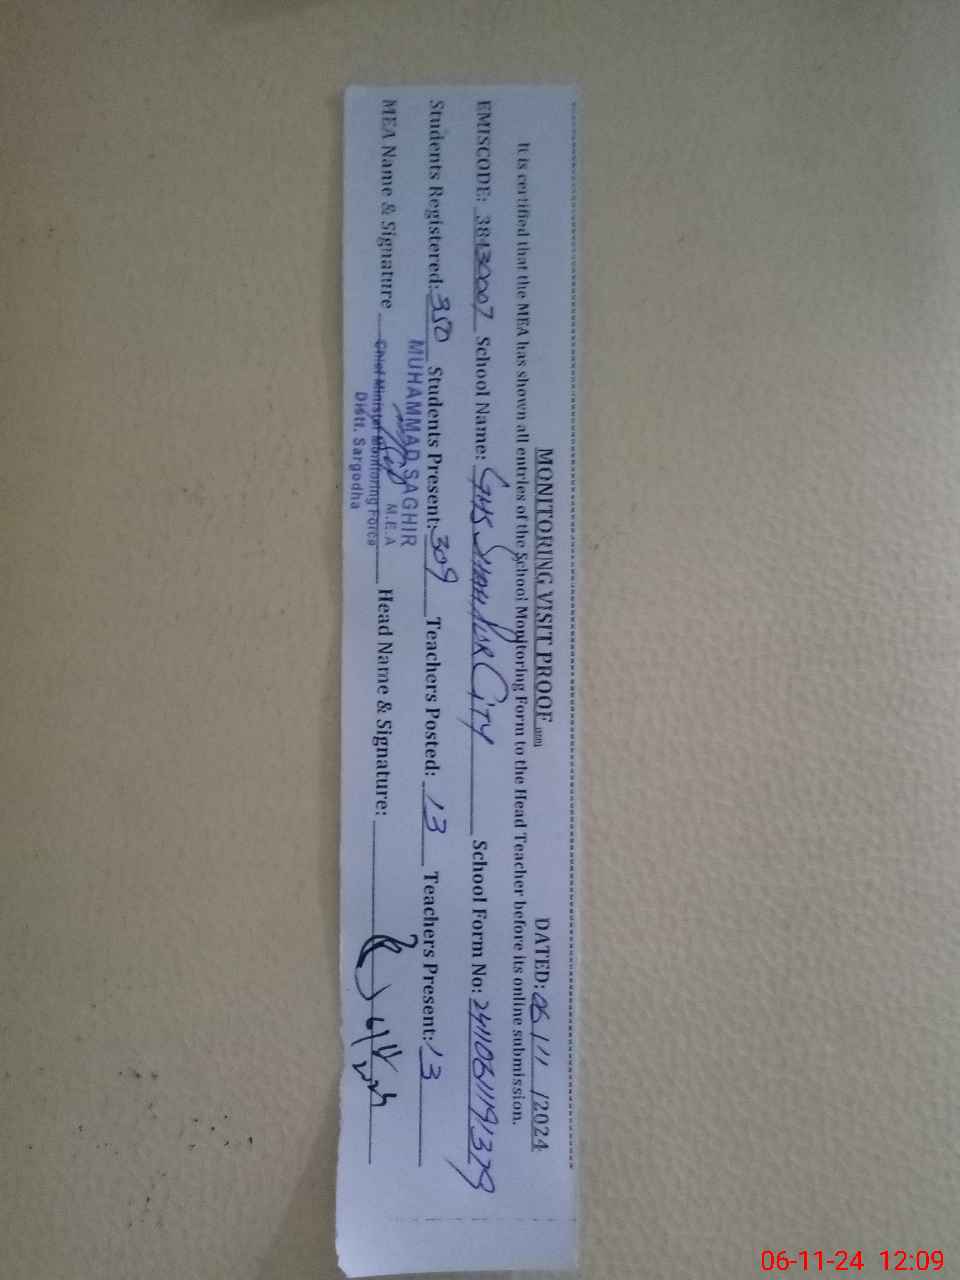 MONITORING VISIT PROOF DATED: 06/11/2024
It is certified that the MEA has shown all entries of the School Monitoring Form to the Head Teacher before its online submission.
EMISCODE: 38430007 School Name: GMS SHAH PUR CITY School Form No: 2411061191379
Students Registered: 350 Students Present: 309 Teachers Posted: 13 Teachers Present: 13
MUHAMMAD SAGHIR
M.E.A
MEA Name & Signature Chief Minister Monitoring Force Head Name & Signature: 6/11/2024
Distt. Sargodha
06-11-24 12:09